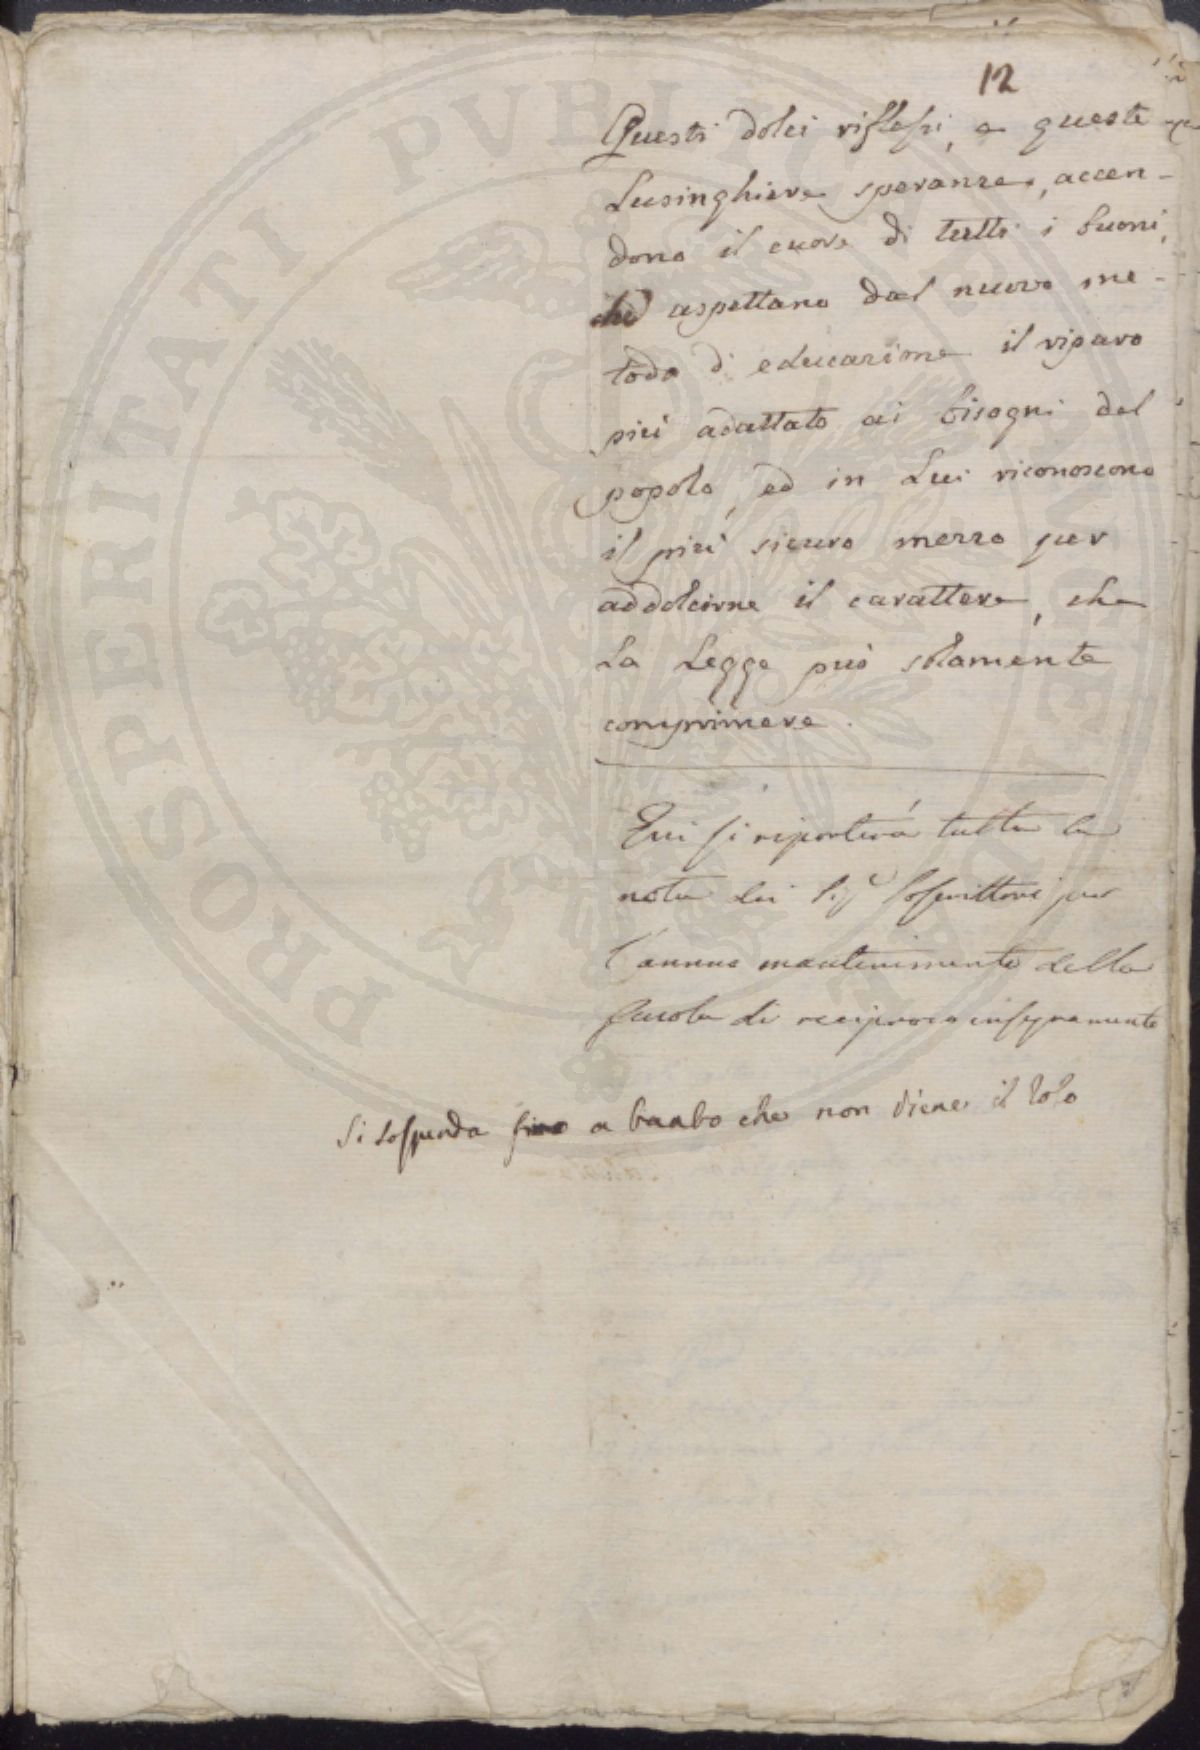 12
Questi dolci riflessi, e queste
Lusinghiere speranze, accen-
dono il cuore di tutti i buoni,
che aspettano dal nuovo me-
todo di educazione il riparo
più adattato ai bisogni del
popolo, ed in Lui riconoscono
il più sicuro mezzo per
addolcirne il carattere, che
La Legge può solamente
comprimere.
Qui si riporterà tutta la
nota dei Sigri Soscrittori per
l'annuo mantenimento della
Scuola di reciproco insegnamento
Si sospenda fino a che non viene il
PROSPERITATI PVBLICAE